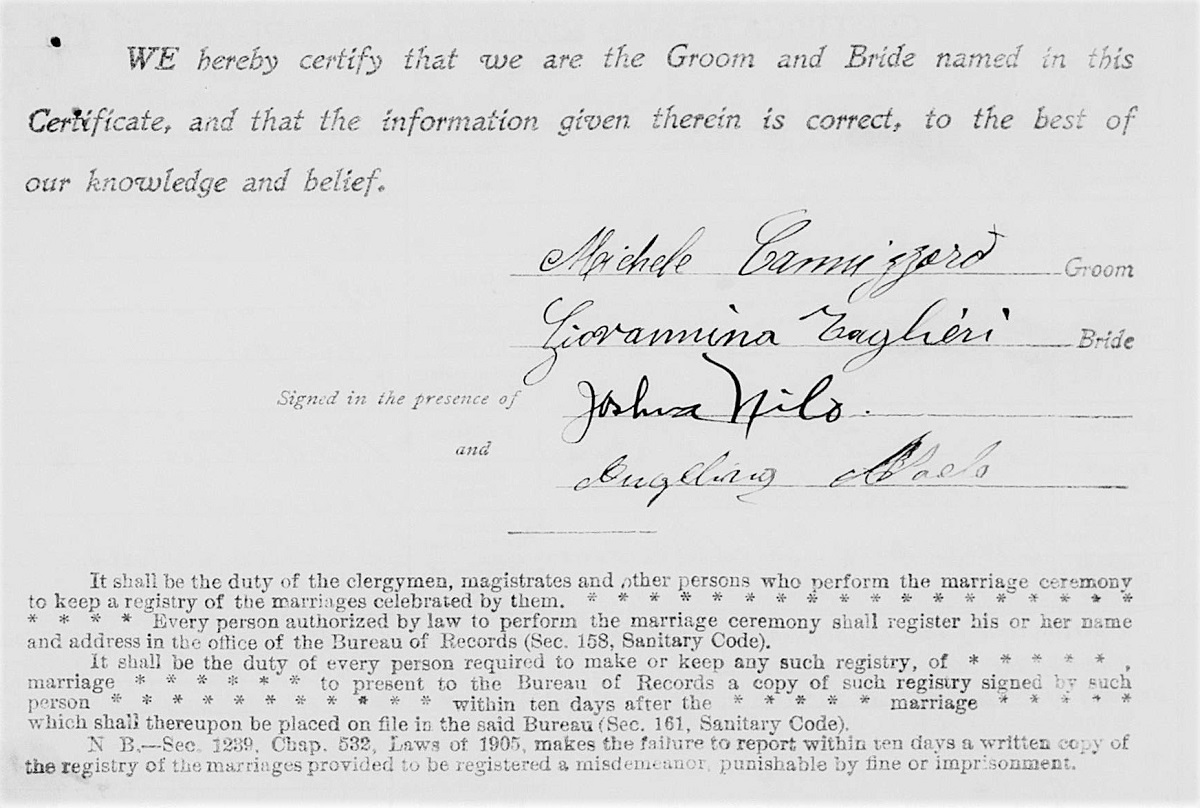 WE hereby certify that we are the Groom and Bride named in this
Certificate, and that the information given therein is correct, to the best of
our knowledge and belief.
Michele Cannizzaro Groom
Giovannina Taglieri Bride
Signed in the presence of Joshua Nilo.
and
It shall be the duty of the clergymen, magistrates and other persons who perform the marriage ceremony
to keep a registry of the marriages celebrated by them. * * * * * * * * * * * * * * * * * *
* * * * Every person authorized by law to perform the marriage ceremony shall register his or her name
and address in the office of the Bureau of Records (Sec. 158, Sanitary Code).
It shall be the duty of every person required to make or keep any such registry, of * * * * * ,
marriage * * * * * * to present to the Bureau of Records a copy of such registry signed by such
person * * * * * * * * * * * within ten days after the * * * * * marriage * * * * *
which shall thereupon be placed on file in the said Bureau (Sec. 161, Sanitary Code).
N B.—Sec. 1239, Chap. 532, Laws of 1905, makes the failure to report within ten days a written copy of
the registry of the marriages provided to be registered a misdemeanor, punishable by fine or imprisonment.